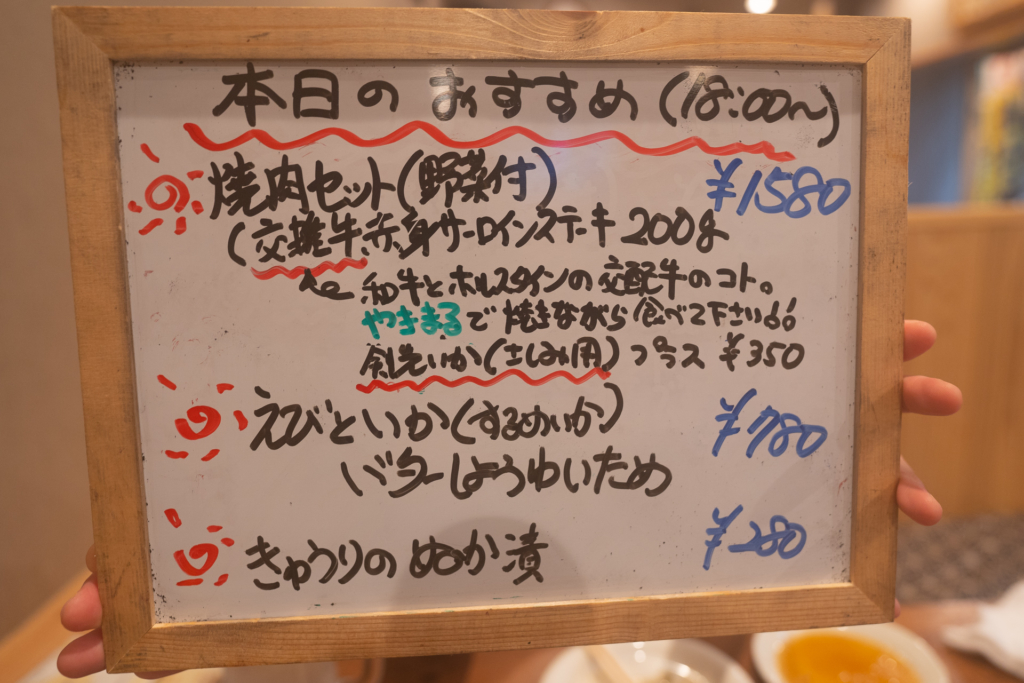 本日のおすすめ(18:00〜)
焼肉セット(野菜付) ¥1580
(交雑牛赤身サーロインステーキ 200g
和牛とホルスタインの交配牛のコト。
やきまるで焼きながら食べて下さい!!
剣先いか(さしみ用)プラス ¥350
えびといか(するめいか) ¥780
バターしょうゆいため
きゅうりのぬか漬 ¥280